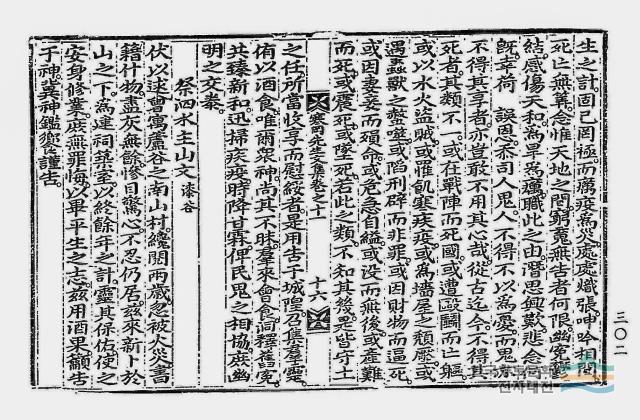 生之計固已罔極而癘疫爲災處處熾張呻吟相聞
死亡無筭念惟天地之間窮鬼無告者何限幽冤
結感傷天和爲旱爲癘職此之由潛思興歎悲念
旣幸荷 誤恩忝司人鬼人不得不以爲憂而鬼
不得其享者亦豈敢不用其心哉從古迄今不得
死者其類不一或在戰陣而死國或遭毆鬪而亡軀
或以水火盜賊或罹飢寒疾疫或爲墻屋之頹壓或
遇蟲獸之螫噬或陷刑辟而非罪或因財物而逼死
或因妻妾而殞命或危急自縊或沒而無後或產難
而死或震死或墜死若此之類不知其幾是皆守土
寒岡先生文集卷之十一 十六
之任所當收享而慰綏者是用告于城隍召集羣靈
侑以酒食唯爾衆神尙其不昧羣來會食洞釋舊冤
共臻新和迅掃疾疫時降甘霖俾民鬼之相協庶幽
明之交泰
祭泗水主山文 漆谷
伏以逑曾寓蘆谷之南山村纔閱兩歲忽被火災書
籍什物盡灰無餘慘目驚心不忍仍居玆來新卜於
山之下爲建祠築室以終餘年之計靈其保佑使之
安身修業庶無罪悔以畢平生之志玆用酒果籲告
于神冀神鑑饗謹告
三〇二